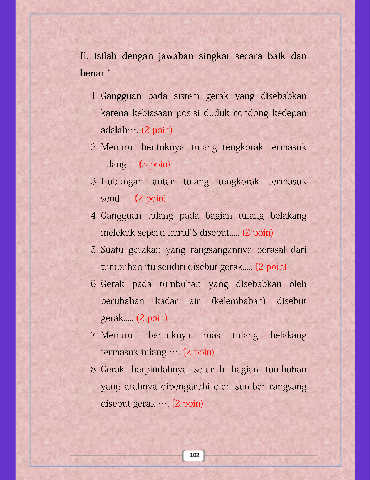 II. Isilah dengan jawaban singkat secara baik dan
benar !
1. Gangguan pada sistem gerak yang disebabkan
karena kebiasaan posisi duduk condong kedepan
adalah…. (2 poin)
2. Menurut bentuknya tulang tengkorak termasuk
tulang…. (2 poin)
3. Hubungan antar tulang tengkorak termasuk
sendi…. (2 poin)
4. Gangguan tulang pada bagian tulang belakang
melekuk seperti huruf S disebut..... (2 poin)
5. Suatu gerakan yang rangsangannya berasal dari
tumbuhan itu sendiri disebut gerak..... (2 poin)
6. Gerak pada tumbuhan yang disebabkan oleh
perubahan kadar air (kelembaban) disebut
gerak..... (2 poin)
7. Menurut bentuknya ruas tulang belakang
termasuk tulang…. (2 poin)
8. Gerak berpindahnya seluruh bagian tumbuhan
yang arahnya dipengaruhi oleh sumber rangsang
disebut gerak…. (2 poin)
102